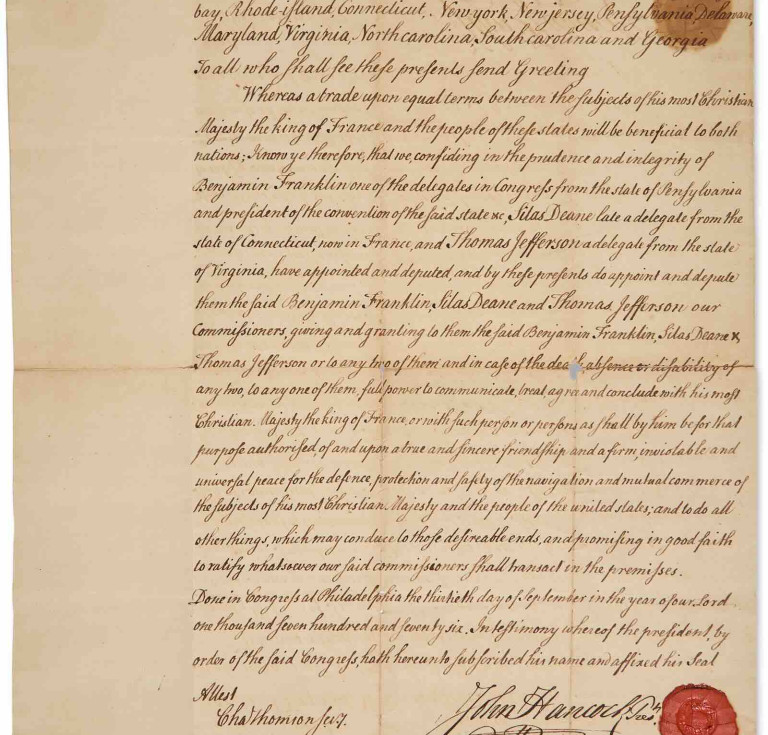 bay, Rhode-island, Connecticut, New york, New jersey, Pensylvania Delaware,
Maryland, Virginia, North carolina, South carolina and Georgia
To all who shall see these presents send Greeting
Whereas a trade upon equal terms between the subjects of his most Christian
Majesty the king of France and the people of these states will be beneficial to both
nations; Know ye therefore, that we, confiding in the prudence and integrity of
Benjamin Franklin one of the delegates in Congress from the state of Pensylvania
and president of the convention of the said state &c, Silas Deane late a delegate from the
state of Connecticut, now in France, and Thomas Jefferson a delegate from the state
of Virginia, have appointed and deputed, and by these presents do appoint and depute
them the said Benjamin Franklin, Silas Deane and Thomas Jefferson our
Commissioners, giving and granting to them the said Benjamin Franklin, Silas Deane &
Thomas Jefferson or to any two of them and in case of the death, absence or disability of
any two, to any one of them, full power to communicate, treat, agree and conclude with his most
Christian Majesty the king of France, or with such person or persons as shall by him be for that
purpose authorised, of and upon a true and sincere friendship and a firm, inviolable and
universal peace for the defence, protection and safety of the navigation and mutual commerce of
the subjects of his most Christian Majesty and the people of the united states; and to do all
other things, which may conduce to those desireable ends, and promising in good faith
to ratify whatsoever our said commissioners shall transact in the premisses.
Done in Congress at Philadelphia the thirtieth day of September in the year of our Lord
one thousand seven hundred and seventy six. In testimony whereof the president, by
order of the said Congress, hath hereunto subscribed his name and affixed his Seal
Attest
Cha Thomson secy.
John Hancock Presdt